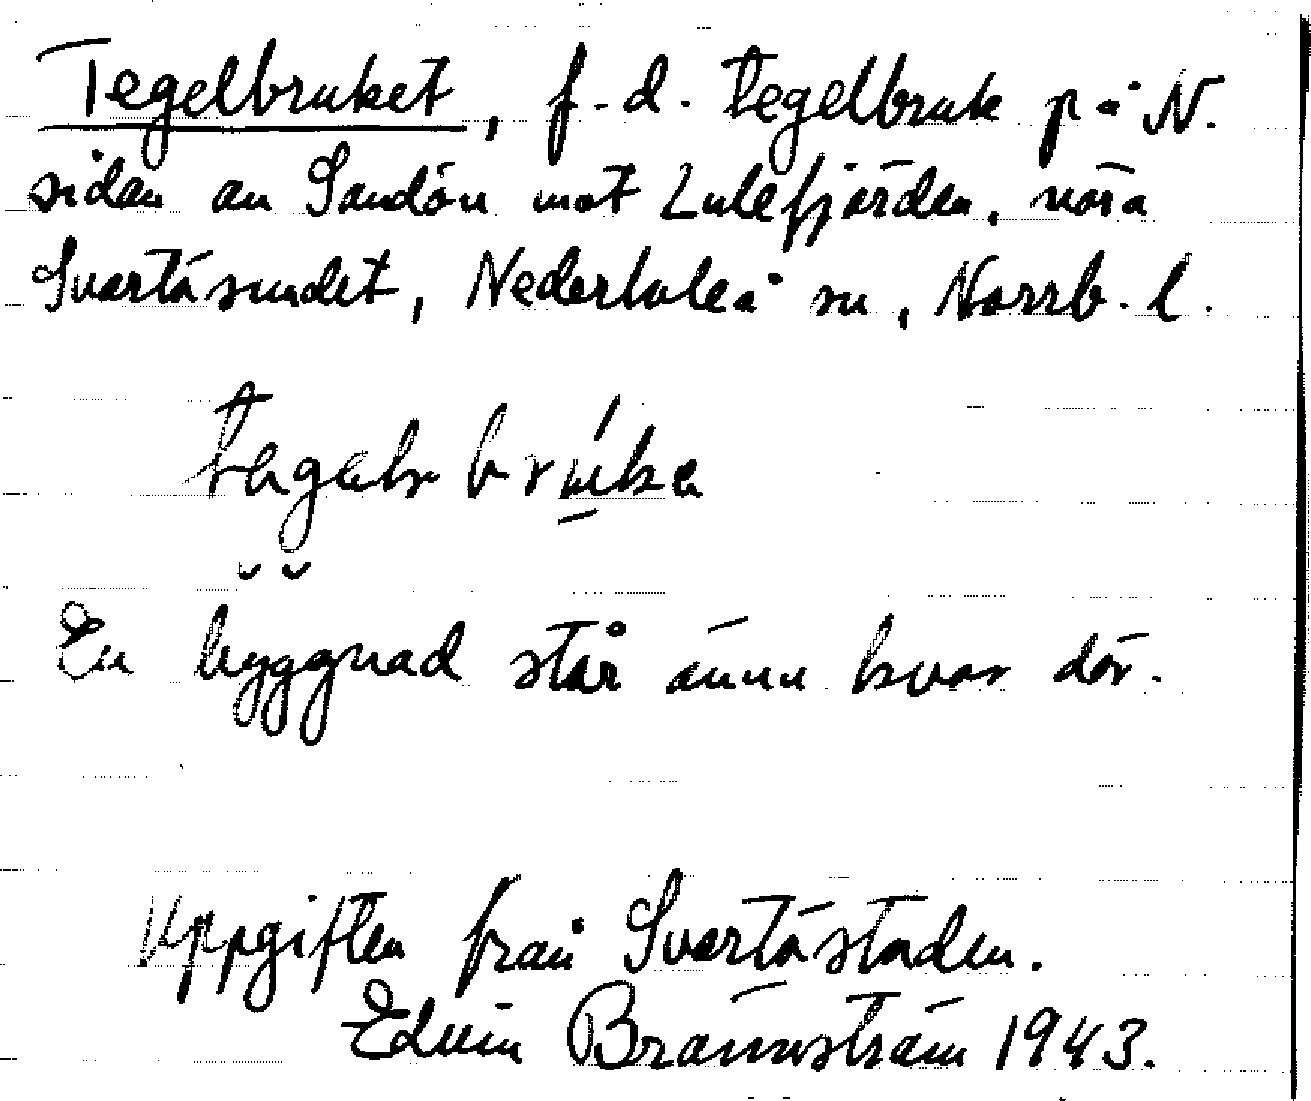 Tegelbruket, f.d. tegelbruk på N.
sidan av Sandön mot Lulefjärden, nära
Svartösundet, Nederluleå sn, Norrb. l.
En byggnad står ännu kvar där.
Uppgiften från Svartöstaden.
Edvin Brännström 1943.